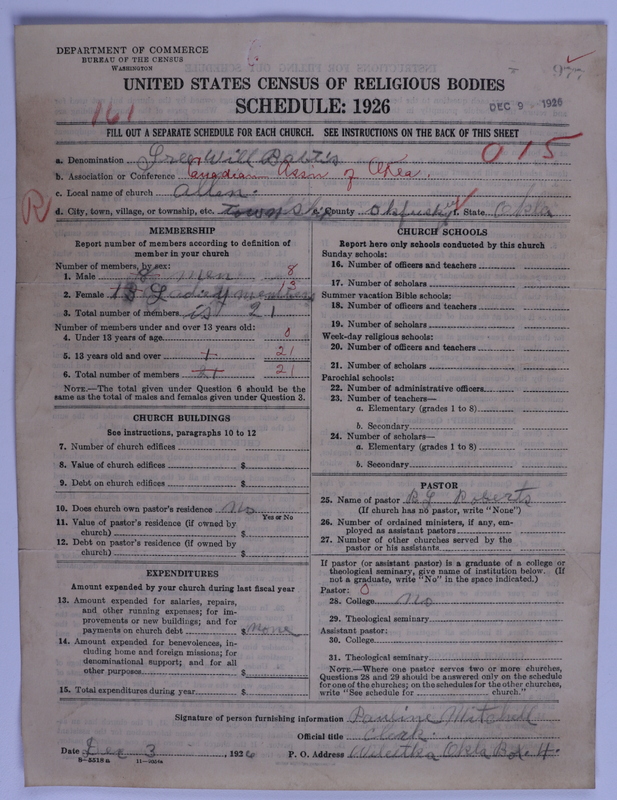 DEPARTMENT OF COMMERCE
BUREAU OF THE CENSUS
WASHINGTON
UNITED STATES CENSUS OF RELIGIOUS BODIES
SCHEDULE: 1926
DEC 9 1926
161
FILL OUT A SEPARATE SCHEDULE FOR EACH CHURCH. SEE INSTRUCTIONS ON THE BACK OF THIS SHEET
a. Denomination Free Will Babtis 015
b. Association or Conference Canadian Assn of Okla.
c. Local name of church Allen.
R
d. City, town, village, or township, etc. Township e. County Okfusky f. State Okla
MEMBERSHIP
Report number of members according to definition of
member in your church
Number of members, by sex:
1. Male 8 men 8
2. Female 13 Lady members 13
3. Total number of members is 21
Number of members under and over 13 years old:
4. Under 13 years of age 0
5. 13 years old and over 1 21
6. Total number of members 21 21
NOTE.—The total given under Question 6 should be the
same as the total of males and females given under Question 3.
CHURCH BUILDINGS
See instructions, paragraphs 10 to 12
7. Number of church edifices
8. Value of church edifices $
9. Debt on church edifices $
10. Does church own pastor's residence No
Yes or No
11. Value of pastor's residence (if owned by
church) $
12. Debt on pastor's residence (if owned by
church) $
EXPENDITURES
Amount expended by your church during last fiscal year
13. Amount expended for salaries, repairs,
and other running expenses; for im-
provements or new buildings; and for
payments on church debt $ none
14. Amount expended for benevolences, in-
cluding home and foreign missions; for
denominational support; and for all
other purposes $
15. Total expenditures during year $
CHURCH SCHOOLS
Report here only schools conducted by this church
Sunday schools:
16. Number of officers and teachers
17. Number of scholars
Summer vacation Bible schools:
18. Number of officers and teachers
19. Number of scholars
Week-day religious schools:
20. Number of officers and teachers
21. Number of scholars
Parochial schools:
22. Number of administrative officers
23. Number of teachers—
a. Elementary (grades 1 to 8)
b. Secondary
24. Number of scholars—
a. Elementary (grades 1 to 8)
b. Secondary
PASTOR
25. Name of pastor B L Roberts
(If church has no pastor, write "None")
26. Number of ordained ministers, if any, em-
ployed as assistant pastors
27. Number of other churches served by the
pastor or his assistants
If pastor (or assistant pastor) is a graduate of a college or
theological seminary, give name of institution below. (If
not a graduate, write "No" in the space indicated.)
Pastor: 0
28. College No
29. Theological seminary
Assistant pastor:
30. College
31. Theological seminary
NOTE.—Where one pastor serves two or more churches,
Questions 28 and 29 should be answered only on the schedule
for one of the churches; on the schedules for the other churches,
write "See schedule for church."
Signature of person furnishing information Pauline Mitchell
Official title Clerk.
Date Dec 3, 1926 P. O. Address Weleetka Okla Bx. 4.
8-5518a